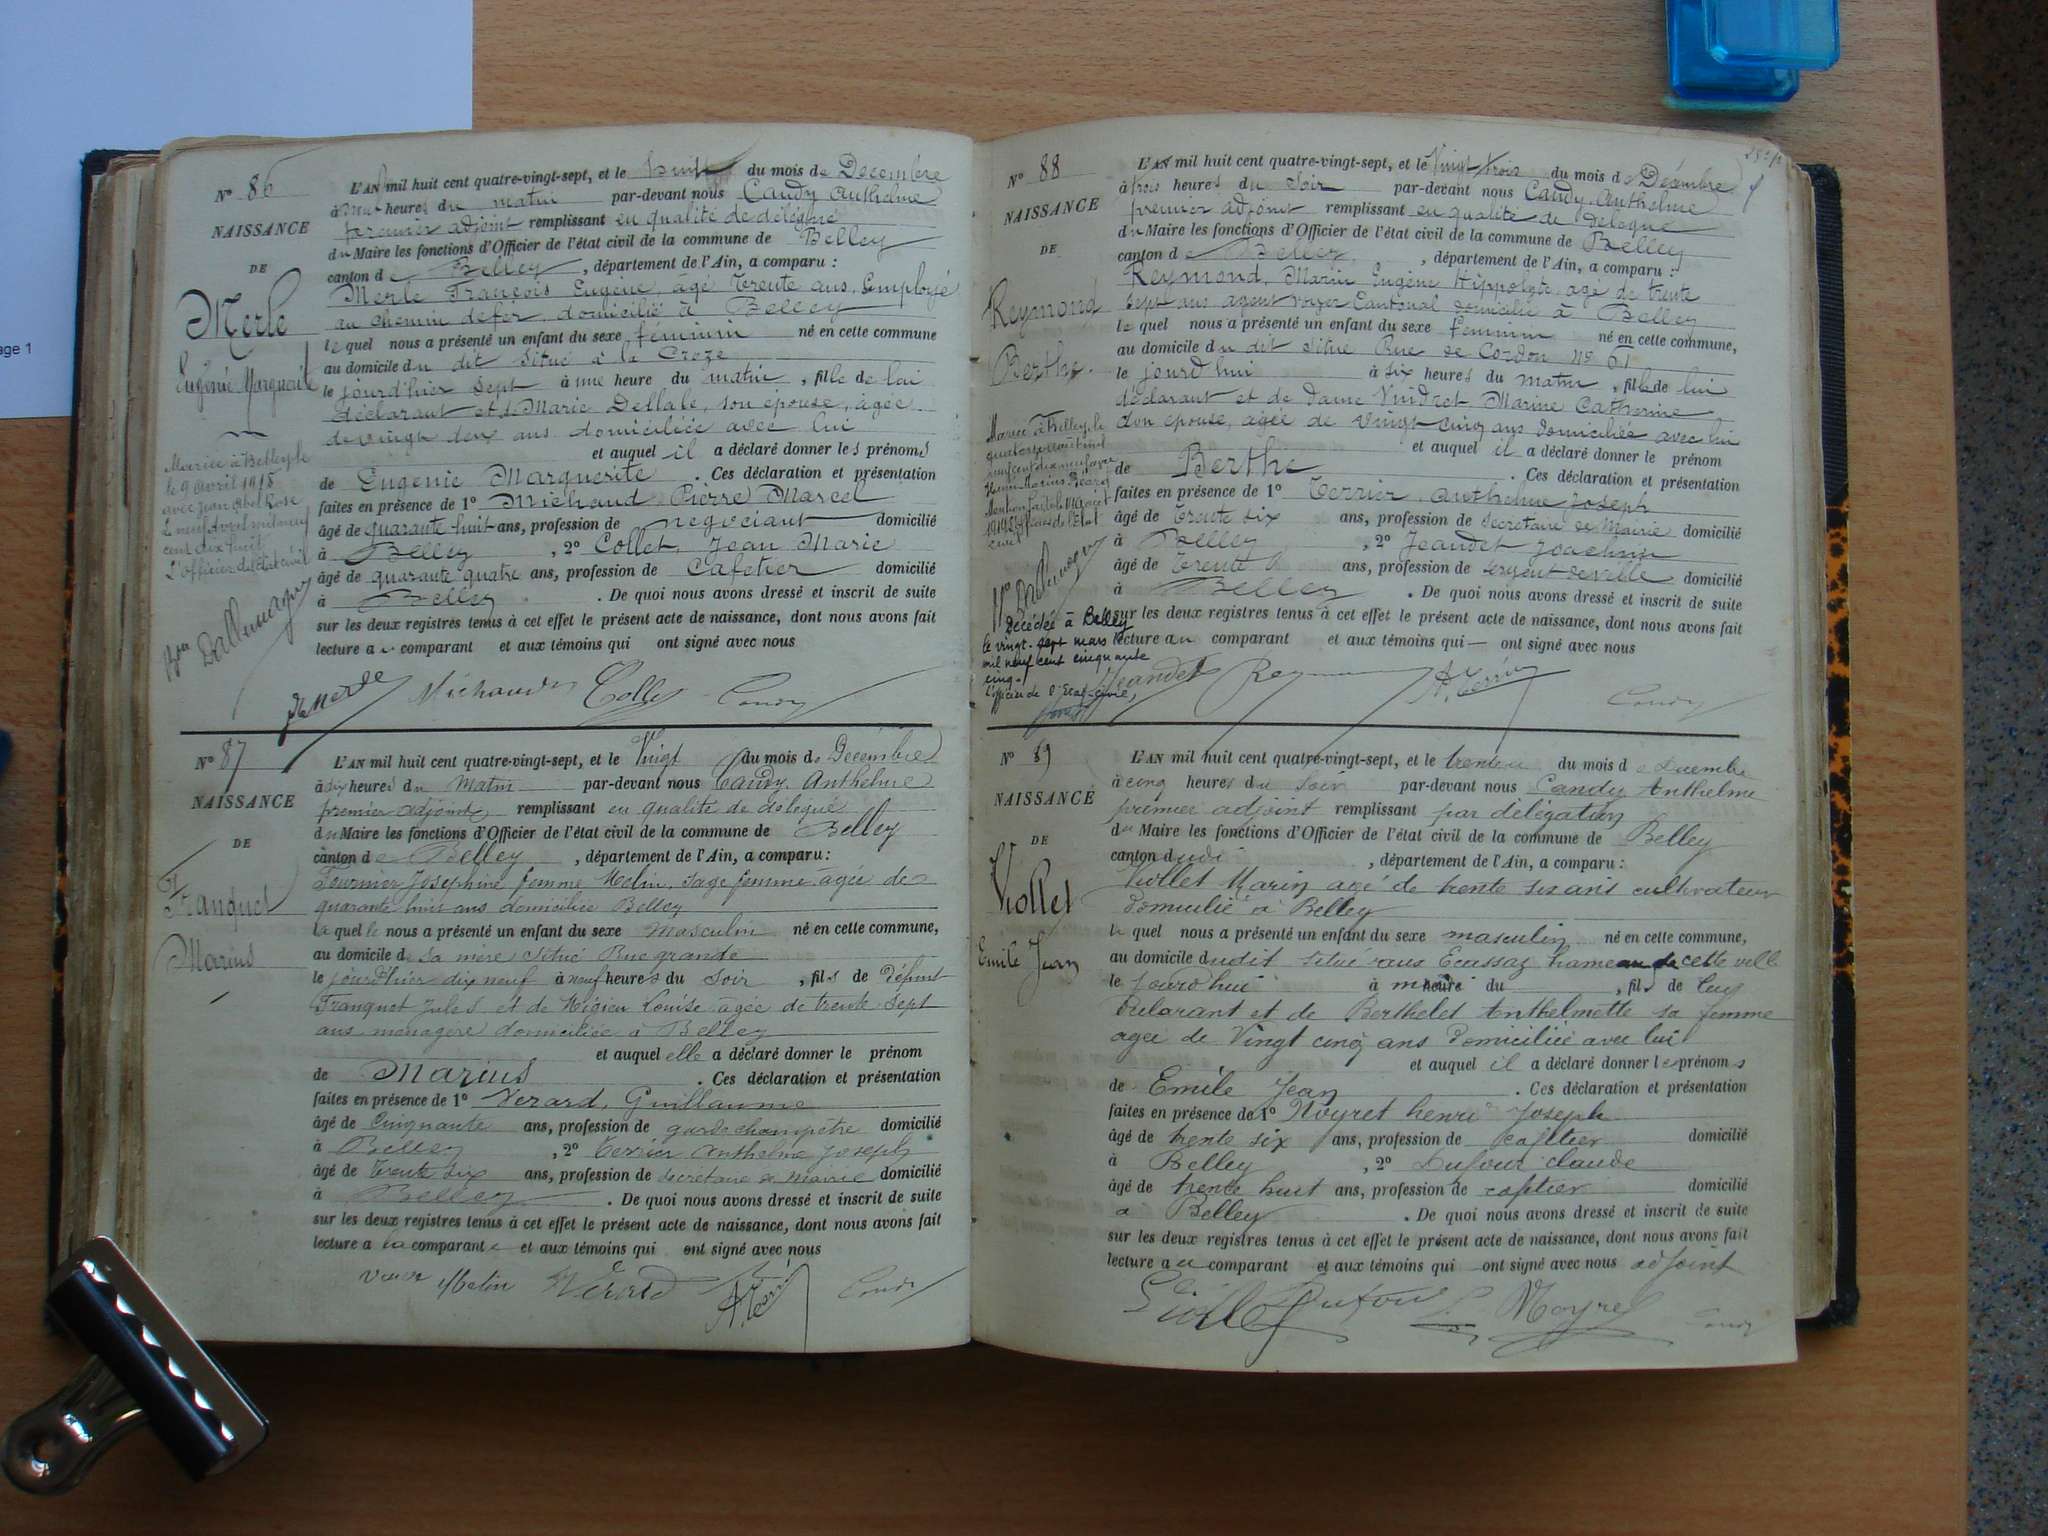 age 1
N° 86
NAISSANCE
DE
Merle
Eugénie Marguerite
Mariée à Belley le
le 9 avril 1918
avec Jean Abel Rose
Le neuf avril mil neuf
cent dix huit
L'officier de l'état civil
Dallemagne
L'AN mil huit cent quatre-vingt-sept, et le huit du mois de Décembre
à heures du matin par-devant nous Candy Anthelme
premier adjoint remplissant en qualité de délégué
du Maire les fonctions d'Officier de l'état civil de la commune de Belley
canton de Belley, département de l'Ain, a comparu :
Merle François Eugène, âgé trente ans, Employé
au chemin de fer, domicilié à Belley
lequel nous a présenté un enfant du sexe féminin né en cette commune
au domicile du dit situé à la Croze
le jourd'hier sept à une heure du matin, fille de lui
déclarant et de Marie Dellale, son épouse, âgée
de vingt deux ans domiciliée avec lui
et auquel il a déclaré donner les prénoms
de Eugénie Marguerite. Ces déclaration et présentation
faites en présence de 1° Michaud Pierre Marcel
âgé de quarante huit ans, profession de négociant domicilié
à Belley, 2° Collet, Jean Marie
âgé de quarante quatre ans, profession de Cafetier domicilié
à Belley. De quoi nous avons dressé et inscrit de suite
sur les deux registres tenus à cet effet le présent acte de naissance, dont nous avons fait
lecture au comparant et aux témoins qui ont signé avec nous
Merle Michaud Collet Candy
N° 87
NAISSANCE
DE
Franquet
Marius
L'AN mil huit cent quatre-vingt-sept, et le Vingt du mois de Décembre
à dix heures du Matin par-devant nous Candy Anthelme
premier adjoint remplissant en qualité de délégué
du Maire les fonctions d'Officier de l'état civil de la commune de Belley
canton de Belley, département de l'Ain, a comparu :
Fournier Joséphine femme Melin, sage femme âgée de
quarante huit ans domiciliée Belley
laquelle nous a présenté un enfant du sexe Masculin né en cette commune,
au domicile de sa mère située Rue grande
le jourd'hier dix neuf à neuf heures du Soir, fils de Défunt
Franquet Jules et de Mégieu Louise âgée de trente sept
ans ménagère domiciliée à Belley
et auquel elle a déclaré donner le prénom
de Marius. Ces déclaration et présentation
faites en présence de 1° Verard, Guillaume
âgé de Cinquante ans, profession de garde champêtre domicilié
à Belley, 2° Terrier Anthelme Joseph
âgé de Trente six ans, profession de secrétaire de Mairie domicilié
à Belley. De quoi nous avons dressé et inscrit de suite
sur les deux registres tenus à cet effet le présent acte de naissance, dont nous avons fait
lecture a la comparante et aux témoins qui ont signé avec nous
Melin Vérard Candy
N° 88
NAISSANCE
DE
Reymond
Berthe
Mariée à Belley, le
quatorze août mil
neuf cent dix neuf avec
1919 L'officier de l'Etat
civil
Décédée à Belley
le vingt-sept mars
mil neuf cent cinquante
cinq.
L'officier de l'Etat-civil,
L'AN mil huit cent quatre-vingt-sept, et le Vingt trois du mois de Décembre
à trois heures du Soir par-devant nous Candy Anthelme
premier adjoint remplissant en qualité de délégué
du Maire les fonctions d'Officier de l'état civil de la commune de Belley
canton de Belley, département de l'Ain, a comparu :
Reymond, Marin Eugène Hippolyte, agé de trente
sept ans agent voyer Cantonal domicilié à Belley
lequel nous a présenté un enfant du sexe féminin né en cette commune,
au domicile du dit située Rue de Cordon N° 61
le jourd'hui à six heures du matin, fille de lui
déclarant et de dame Vindret Marine Catherine
son épouse, agée de vingt cinq ans domiciliée avec lui
et auquel il a déclaré donner le prénom
de Berthe. Ces déclaration et présentation
faites en présence de 1° Terrier Anthelme Joseph
âgé de Trente six ans, profession de Secrétaire de Mairie domicilié
à Belley, 2° Jeandet Joachim
âgé de Trente ans, profession de sergent de ville domicilié
à Belley. De quoi nous avons dressé et inscrit de suite
sur les deux registres tenus à cet effet le présent acte de naissance, dont nous avons fait
lecture au comparant et aux témoins qui ont signé avec nous
Jeandet Reymond A. Terrier Candy
N° 89
NAISSANCE
DE
Viollet
Emile Jean
L'AN mil huit cent quatre-vingt-sept, et le trente du mois de Decembre
à cinq heures du Soir par-devant nous Candy Anthelme
premier adjoint remplissant par délégation
du Maire les fonctions d'Officier de l'état civil de la commune de Belley
canton dudi, département de l'Ain, a comparu :
Viollet Marin agé de trente six ans cultivateur
domicilié à Belley
lequel nous a présenté un enfant du sexe masculin né en cette commune,
au domicile dudit situé Ecassaz hameau de cette ville
le jourd'hui à midi heure du, fils de luy
Déclarant et de Berthelet Anthelmette sa femme
agée de Vingt cinq ans domiciliée avec lui
et auquel il a déclaré donner les prénoms
de Emile Jean. Ces déclaration et présentation
faites en présence de 1° Moyret henri Joseph
âgé de trente six ans, profession de cafetier domicilié
à Belley, 2° Dufour claude
âgé de trente huit ans, profession de cafetier domicilié
a Belley. De quoi nous avons dressé et inscrit de suite
sur les deux registres tenus à cet effet le présent acte de naissance, dont nous avons fait
lecture au comparant et aux témoins qui ont signé avec nous adjoint
Viollet Dufour Moyret Candy